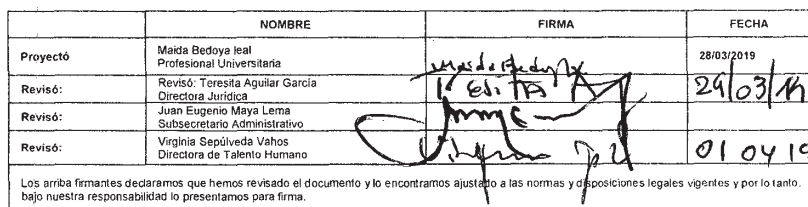 NOMBRE FIRMA FECHA
Proyectó Maida Bedoya leal
Profesional Universitaria Maida Bedoya 28/03/2019
Revisó: Revisó: Teresita Aguilar García
Directora Jurídica 29/03/19
Revisó: Juan Eugenio Maya Lema
Subsecretario Administrativo
Revisó: Virginia Sepúlveda Vahos
Directora de Talento Humano 01 04 19
Los arriba firmantes declaramos que hemos revisado el documento y lo encontramos ajustado a las normas y disposiciones legales vigentes y por lo tanto,
bajo nuestra responsabilidad lo presentamos para firma.